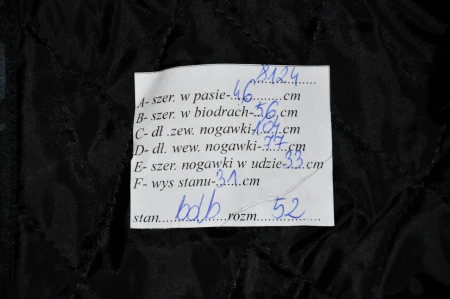 8124
A- szer. w pasie-46cm
B- szer. w biodrach-56cm
C- dł .zew. nogawki-104cm
D- dł. wew. nogawki-77cm
E- szer. nogawki w udzie-33cm
F- wys stanu-31cm
stan bdb rozm. 52